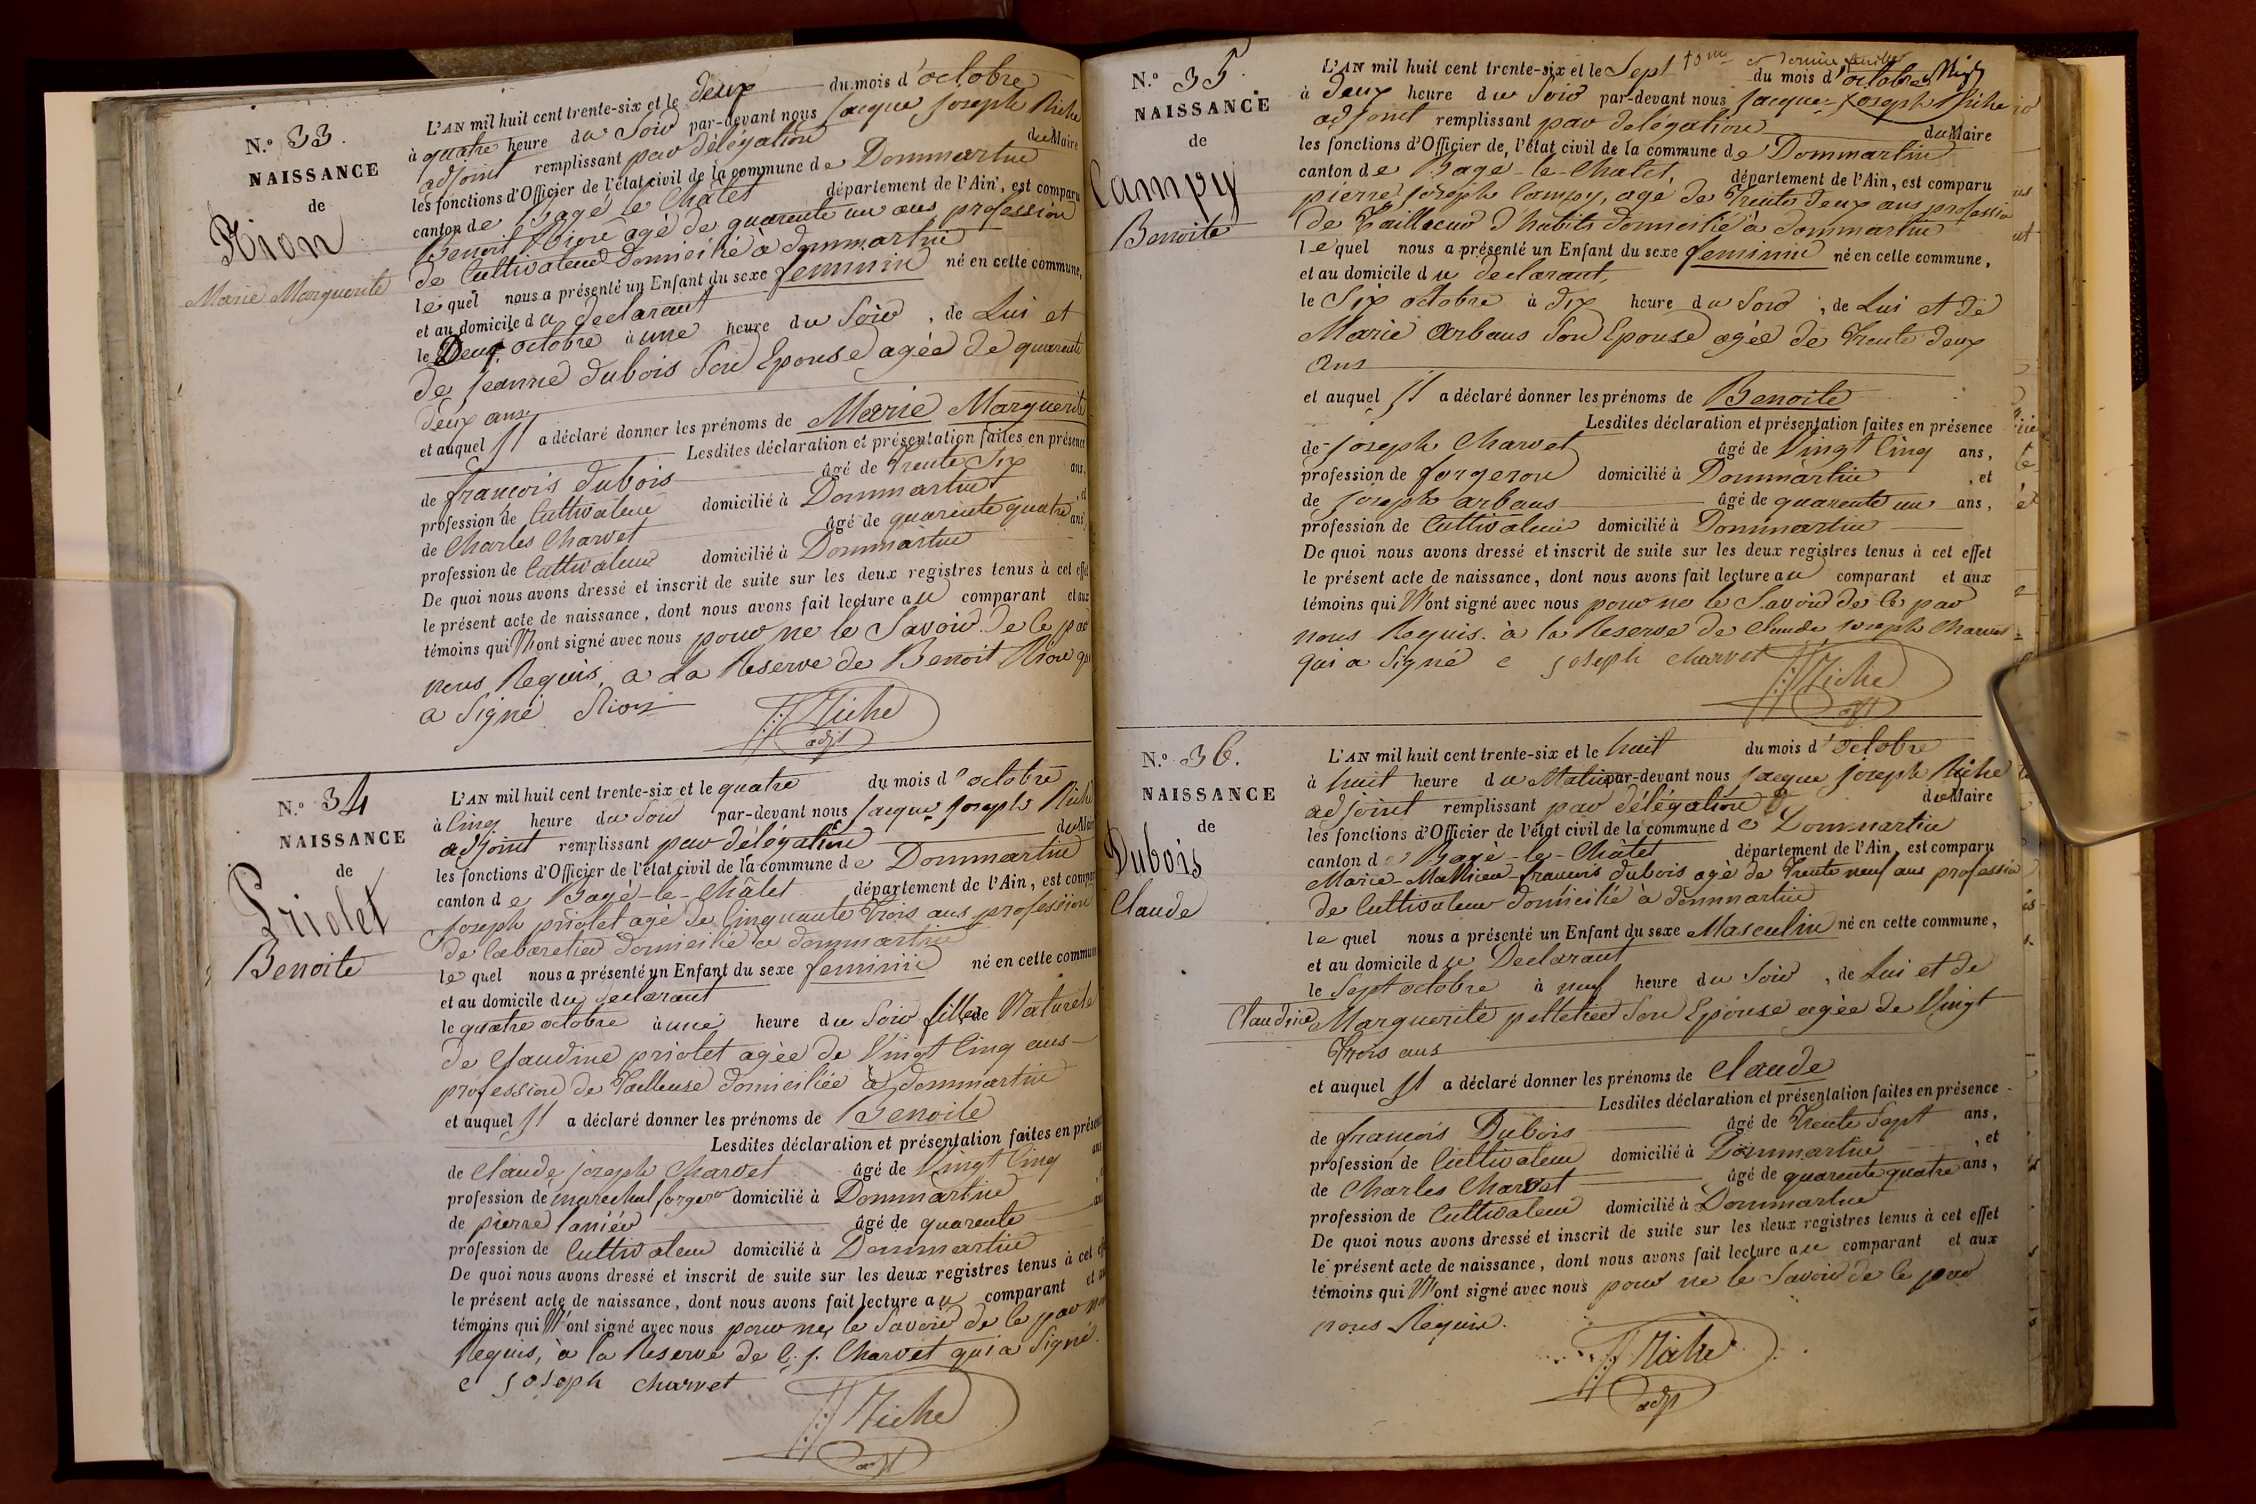 N.º 33.
NAISSANCE
de
Rion
Marie Marguerite
L'AN mil huit cent trente-six et le deux du mois d'octobre
à quatre heure du Soir par-devant nous Jacque Joseph Riche
adjoint remplissant par délégation du Maire
les fonctions d'Officier de l'état civil de la commune de Dommartin
canton de Bagé le Châtel département de l'Ain, est comparu
Benoit Rion agé de quarente un ans profession
de Cultivateur domicilié à dommartin
lequel nous a présenté un Enfant du sexe feminin né en cette commune,
et au domicile du declarant
le Deux octobre à une heure du Soir, de Lui et
de jeanne dubois Son Epouse agée de quarente
deux ans
et auquel Il a déclaré donner les prénoms de Marie Marguerite
Lesdites déclaration et présentation faites en présence
de françois dubois âgé de Trente Six ans,
profession de Cultivateur domicilié à Dommartin, et
de Charles Charvet âgé de quarente quatre ans
profession de Cultivateur domicilié à Dommartin
De quoi nous avons dressé et inscrit de suite sur les deux registres tenus à cet effet
le présent acte de naissance, dont nous avons fait lecture au comparant et aux
témoins qui N'ont signé avec nous pour ne le Savoir de Ce par
nous Requis, a La Reserve de Benoit Rion qui
a Signé Rion
Riche
adjt
N.º 34
NAISSANCE
de
Priolet
Benoite
L'AN mil huit cent trente-six et le quatre du mois d'octobre
à Cinq heure du Soir par-devant nous Jacque Joseph Riche
adjoint remplissant par délégation du Maire
les fonctions d'Officier de l'état civil de la commune de Dommartin
canton de Bagé-le-Châtel département de l'Ain, est comparu
Joseph priolet agé de Cinquante Trois ans profession
de Cabaretier domicilié a dommartin
lequel nous a présenté un Enfant du sexe feminin né en cette commune
et au domicile du declarant
le quatre octobre à une heure du Soir fille de Naturele
de Claudine priolet agée de Vingt Cinq ans
profession de Tailleuse domiciliée à dommartin
et auquel Il a déclaré donner les prénoms de Benoite
Lesdites déclaration et présentation faites en présence
de Claude joseph Charvet âgé de Vingt Cinq ans
profession de marechal forgero domicilié à Dommartin
de pierre âgé de quarente ans
profession de Cultivateur domicilié à Dommartin
De quoi nous avons dressé et inscrit de suite sur les deux registres tenus à cet effet
le présent acte de naissance, dont nous avons fait lecture au comparant et aux
témoins qui N'ont signé avec nous pour ne le Savoir de Ce par nous
Requis, à la Reserve de C. j. Charvet qui a Signé.
c joseph charvet
Riche
adjt
N.º 35.
NAISSANCE
de
Campy
Benoite
et dernier feuillet
L'AN mil huit cent trente-six et le Sept du mois d'octobre
à Deux heure du Soir par-devant nous Jacque-Joseph Riche
adjoint remplissant par délégation du Maire
les fonctions d'Officier de l'état civil de la commune de Dommartin
canton de Bagé-le-Chatel, département de l'Ain, est comparu
pierre joseph Campy, agé de Trente deux ans profession
de Tailleur d'habits domicilié à dommartin
lequel nous a présenté un Enfant du sexe feminin né en cette commune,
et au domicile du declarant,
le Six octobre à dix heure du Soir, de Lui et de
Marie Arbans Son Epouse agée de Trente deux
ans
et auquel Il a déclaré donner les prénoms de Benoite
Lesdites déclaration et présentation faites en présence
de joseph Charvet âgé de Vingt Cinq ans,
profession de forgeron domicilié à Dommartin, et
de joseph arbans âgé de quarente un ans,
profession de Cultivateur domicilié à Dommartin
De quoi nous avons dressé et inscrit de suite sur les deux registres tenus à cet effet
le présent acte de naissance, dont nous avons fait lecture au comparant et aux
témoins qui N'ont signé avec nous pour ne le Savoir de Ce par
nous Requis. à la Reserve de Claude joseph Charvet
qui a Signé c joseph charvet
Riche
adjt
N.º 36.
NAISSANCE
de
Dubois
Claude
L'AN mil huit cent trente-six et le huit du mois d'octobre
à huit heure du Matin par-devant nous Jacque joseph Riche
adjoint remplissant par délégation du Maire
les fonctions d'Officier de l'état civil de la commune de Dommartin
canton de Bagé-le-Châtel département de l'Ain, est comparu
Marie-Mathieu-françois dubois agé de Trente neuf ans profession
de Cultivateur domicilié à dommartin
lequel nous a présenté un Enfant du sexe Masculin né en cette commune,
et au domicile du Declarant
le Sept octobre à neuf heure du Soir, de Lui et de
Claudine Marguerite pelletier Son Epouse agée de Vingt
Trois ans
et auquel Il a déclaré donner les prénoms de Claude
Lesdites déclaration et présentation faites en présence
de françois Dubois âgé de Trente Sept ans,
profession de Cultivateur domicilié à Dommartin, et
de Charles Charvet âgé de quarente quatre ans,
profession de Cultivateur domicilié à Dommartin
De quoi nous avons dressé et inscrit de suite sur les deux registres tenus à cet effet
le présent acte de naissance, dont nous avons fait lecture au comparant et aux
témoins qui N'ont signé avec nous pour ne le Savoir de Ce par
nous Requis.
Riche
adjt